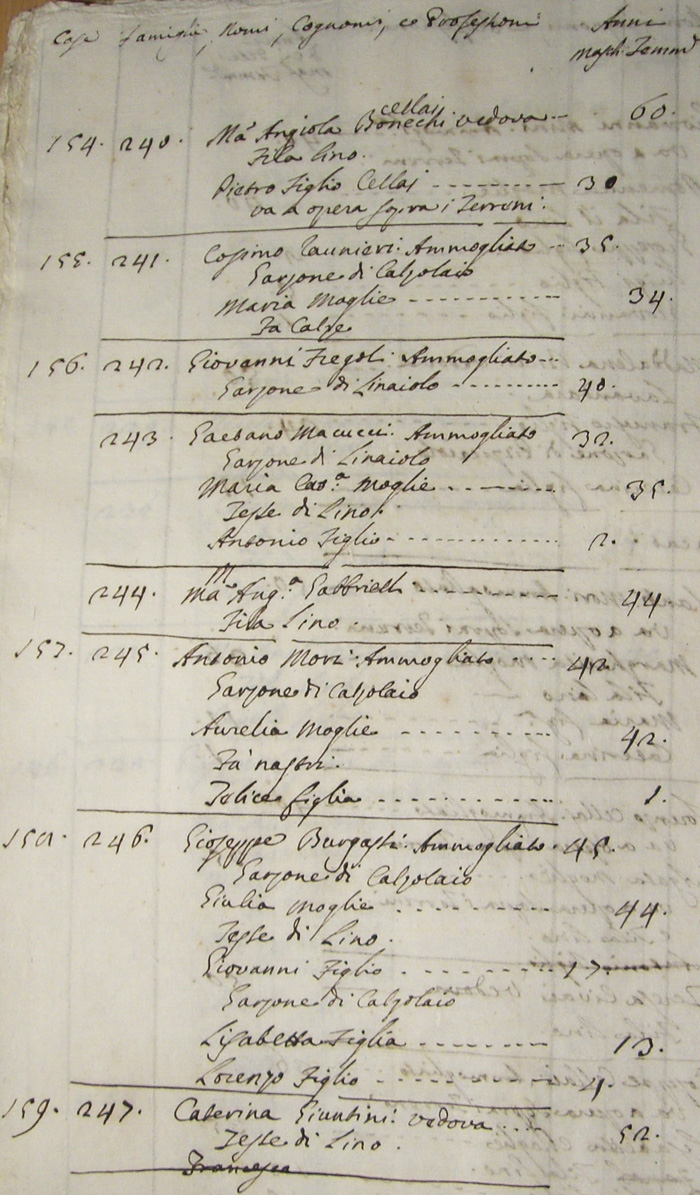 Case Famiglie, Nomi, Cognomi, e Professioni Anni
masch. Femm.
cellai
154. 240. Ma Angiola Bonechi vedova 60.
Fila lino.
Pietro Figlio Cellai 30
va a opera sopra i Terreni.
155. 241. Cosimo Ammogliato 35.
Garzone di Calzolaio
Maria Moglie 34.
Fa Calze
156. 242. Giovanni Fregoli Ammogliato
Garzone di Linaiolo 40.
243. Gaetano Macucci Ammogliato 32.
Garzone di Linaiolo
Maria Cat.a Moglie 35.
Tesse di Lino.
Antonio Figlio 2.
244. Ma Ang.a Gabbrielli 44
Fila Lino.
157. 245. Antonio Mori Ammogliato 42.
Garzone di Calzolaio
Aurelia Moglie 42.
Fa nastri.
Felice figlia 1.
158. 246. Gioseppe Ammogliato. 45.
Garzone di Calzolaio
Giulia Moglie 44.
Tesse di Lino.
Giovanni Figlio 17.
Garzone di Calzolaio
Lisabetta Figlia 13.
Lorenzo Figlio 4.
159. 247. Caterina Giuntini vedova 52.
Tesse di Lino.
Francesca